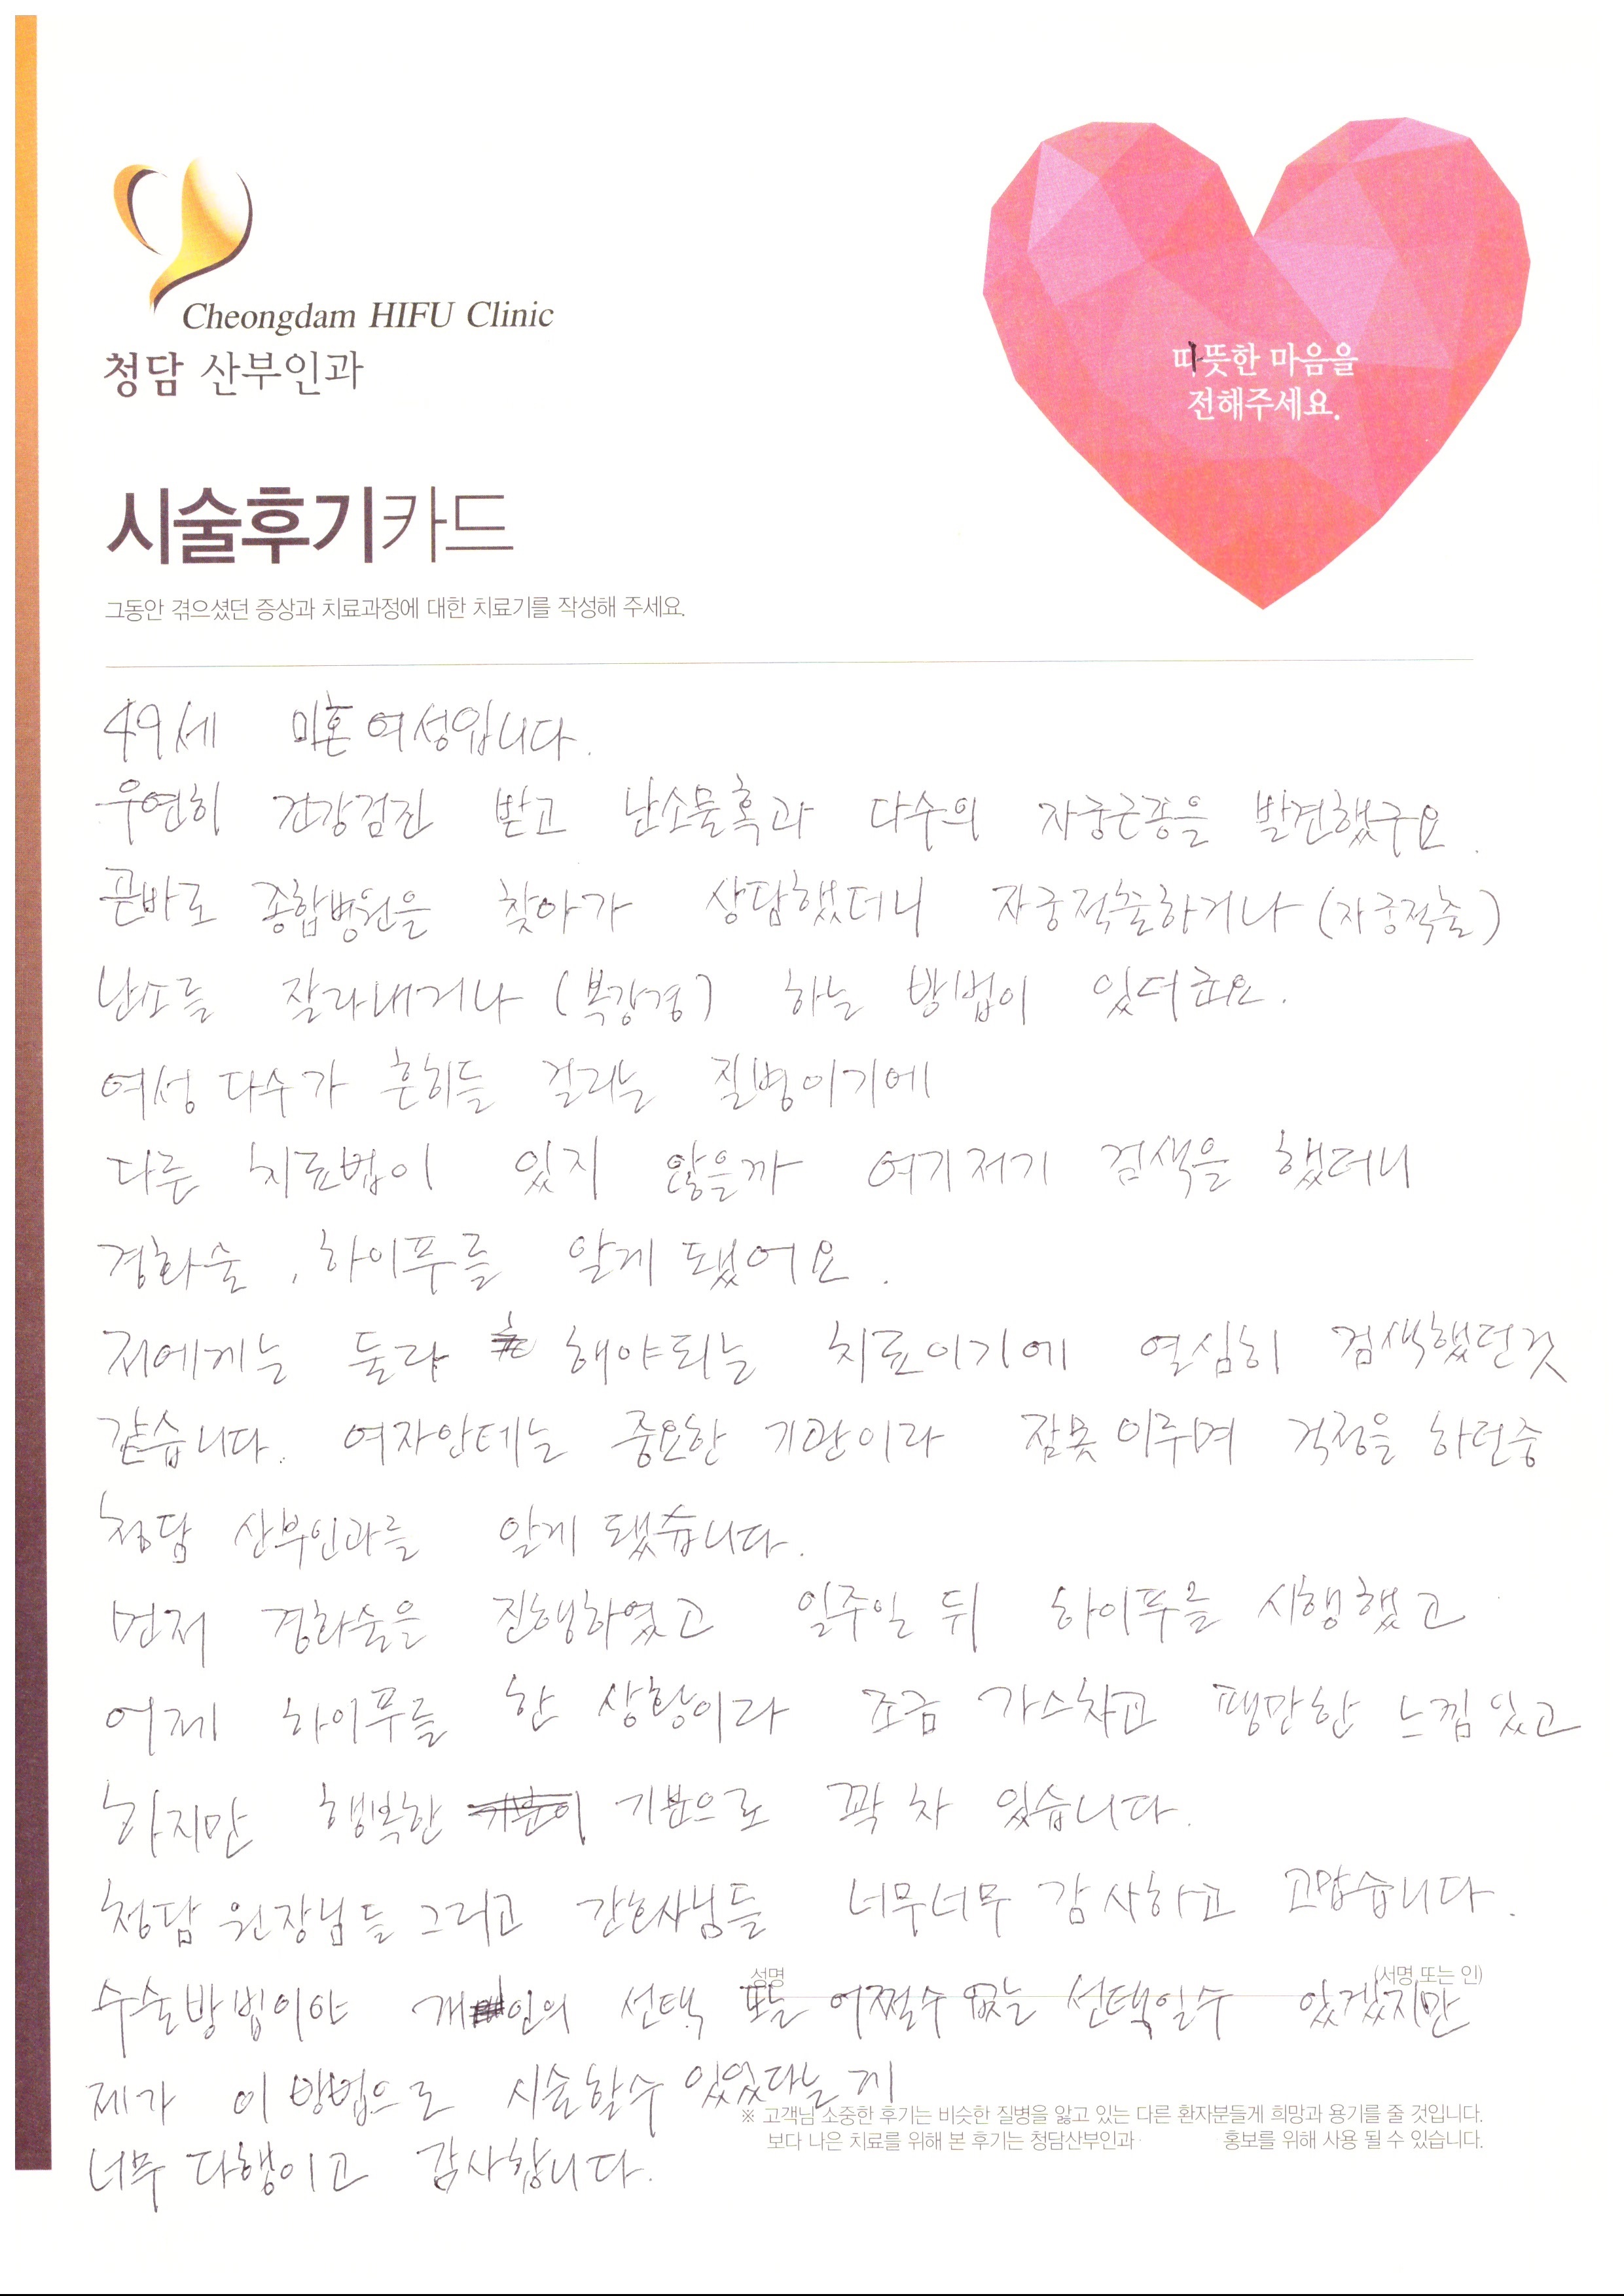 Cheongdam HIFU Clinic
청담 산부인과
따뜻한 마음을
전해주세요.
시술후기카드
그동안 겪으셨던 증상과 치료과정에 대한 치료기를 작성해 주세요.
49세 미혼 여성입니다.
우연히 건강검진 받고 난소물혹과 다수의 자궁근종을 발견했구요.
곧바로 종합병원을 찾아가 상담했더니 자궁적출하거나 (자궁적출)
난소를 잘라내거나 (복강경) 하는 방법이 있더군요.
여성 다수가 흔히들 걸리는 질병이기에
다른 치료법이 있지 않을까 여기저기 검색을 했더니
경화술, 하이푸를 알게 됐어요.
저에게는 둘다 해야되는 치료이기에 열심히 검색했던것
같습니다. 여자안테는 중요한 기관이라 잠못 이루며 걱정을 하던중
청담 산부인과를 알게 됐습니다.
먼저 경화술을 진행하였고 일주일 뒤 하이푸를 시행했고
어제 하이푸를 한 상황이라 조금 가스차고 땡만한 느낌있고
하지만 행복한 기분으로 꽉 차 있습니다.
청담 원장님들 그리고 간호사님들 너무너무 감사하고 고맙습니다.
성명 (서명 또는 인)
수술방법이야 개인의 선택 또는 어쩔수 없는 선택일수 있겠지만
제가 이 방법으로 시술할수 있었다는게
※ 고객님 소중한 후기는 비슷한 질병을 앓고 있는 다른 환자분들게 희망과 용기를 줄 것입니다.
보다 나은 치료를 위해 본 후기는 청담산부인과 홍보를 위해 사용 될 수 있습니다.
너무 다행이고 감사합니다.